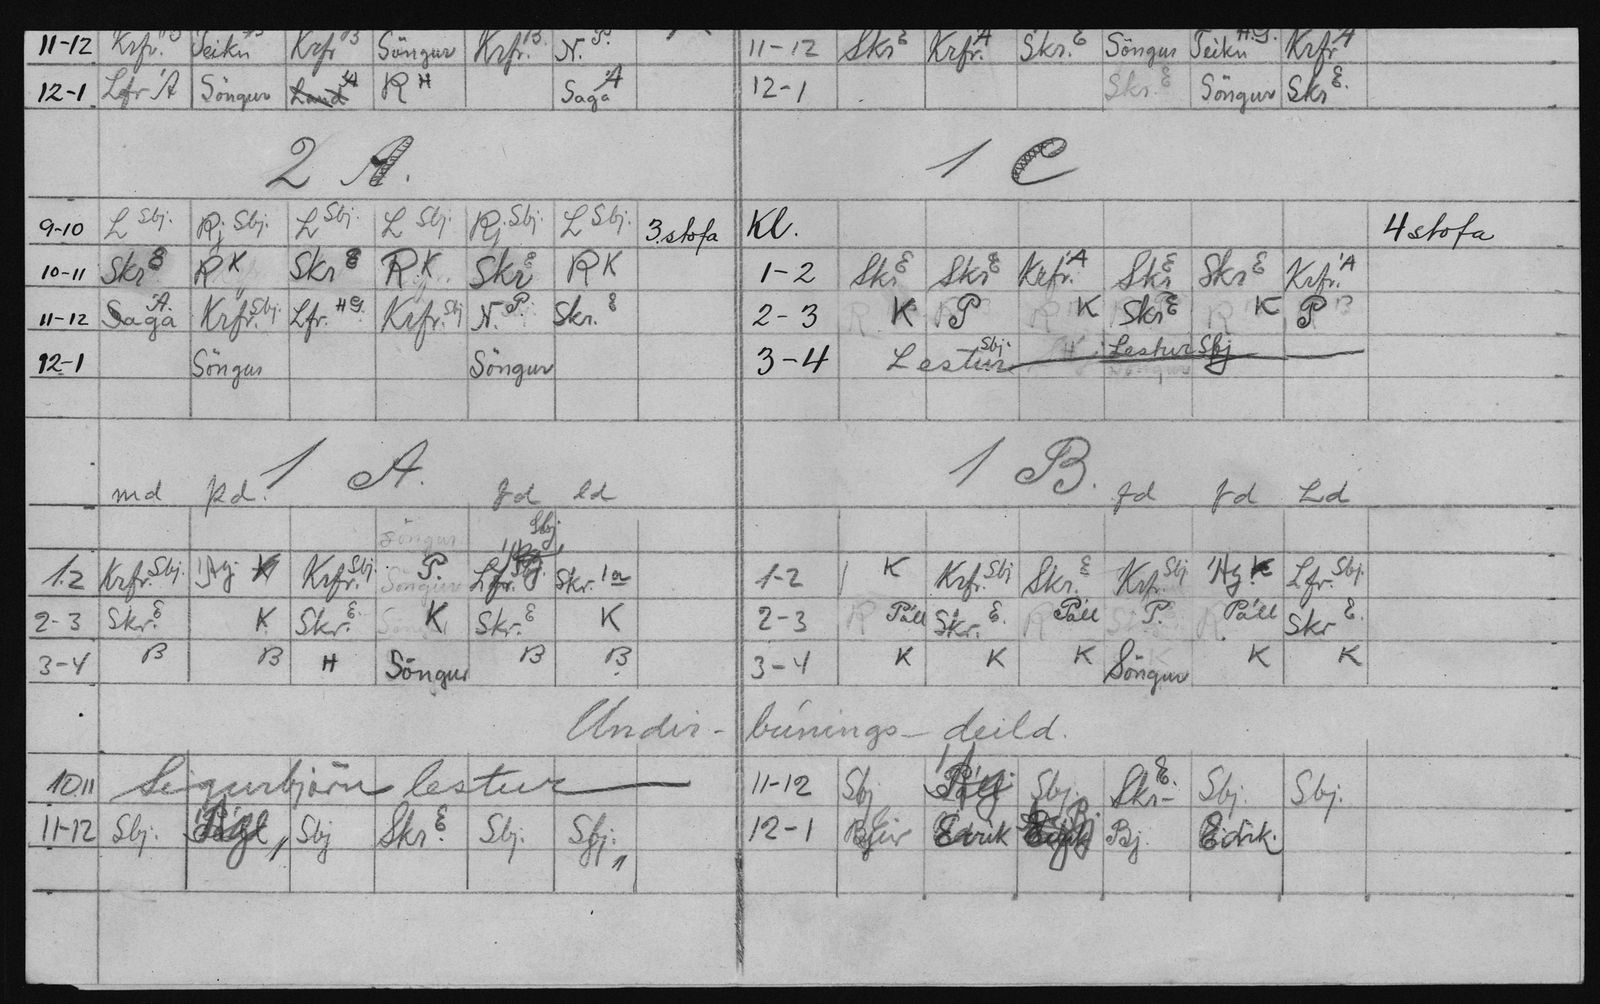 11-12 Krfr. B Teikn Krfr B Söngur Krfr. B. N. P.
12-1 Lfr Á Söngur Land Á R H Saga Á
2 A.
9-10 L Sbj. Rj Sbj. L Sbj. L Sbj. Rj Sbj. L Sbj. 3. stofa
10-11 Skr E R K Skr E R. K. Skr E R K
11-12 Saga Á. Krfr. Sbj. Lfr. HG. Krfr. Sbj N. P. Skr. E
12-1 Söngur Söngur
1 A.
md þd. fd ld
Söngur Sbj.
1-2 Krfr. Sbj. K Krfr. Sbj. P. Lfr. Skr.
2-3 Skr. E K Skr. E. K Skr. E K
3-4 B B H Söngur B B
Undir-
10 11 Sigurbjörn lestur
11-12 Sbj. Sbj Skr. E Sbj. Sbj.
11-12 Skr E Krfr. Á Skr. E Söngur Teikn H.G. Krfr Á
12-1 Skr. E Söngur Skr E.
1 C
Kl. 4 stofa
1-2 Skr E Skr E Krfr. Á Skr E Skr E Krfr. Á
2-3 K P K Skr E K P
3-4 Lestur Sbj. Lestur Sbj
1 B.
fd fd Ld
1-2 K Krfr. Sbj Skr. E Krfr. Sbj K Lfr. Sbj.
2-3 R Páll Skr. E. R Páll P. R Páll Skr E.
3-4 K K K Söngur K K
búnings-deild.
11-12 Sbj Sbj. Skr. E. Sbj. Sbj.
12-1 Eirik Bj. Eirik.